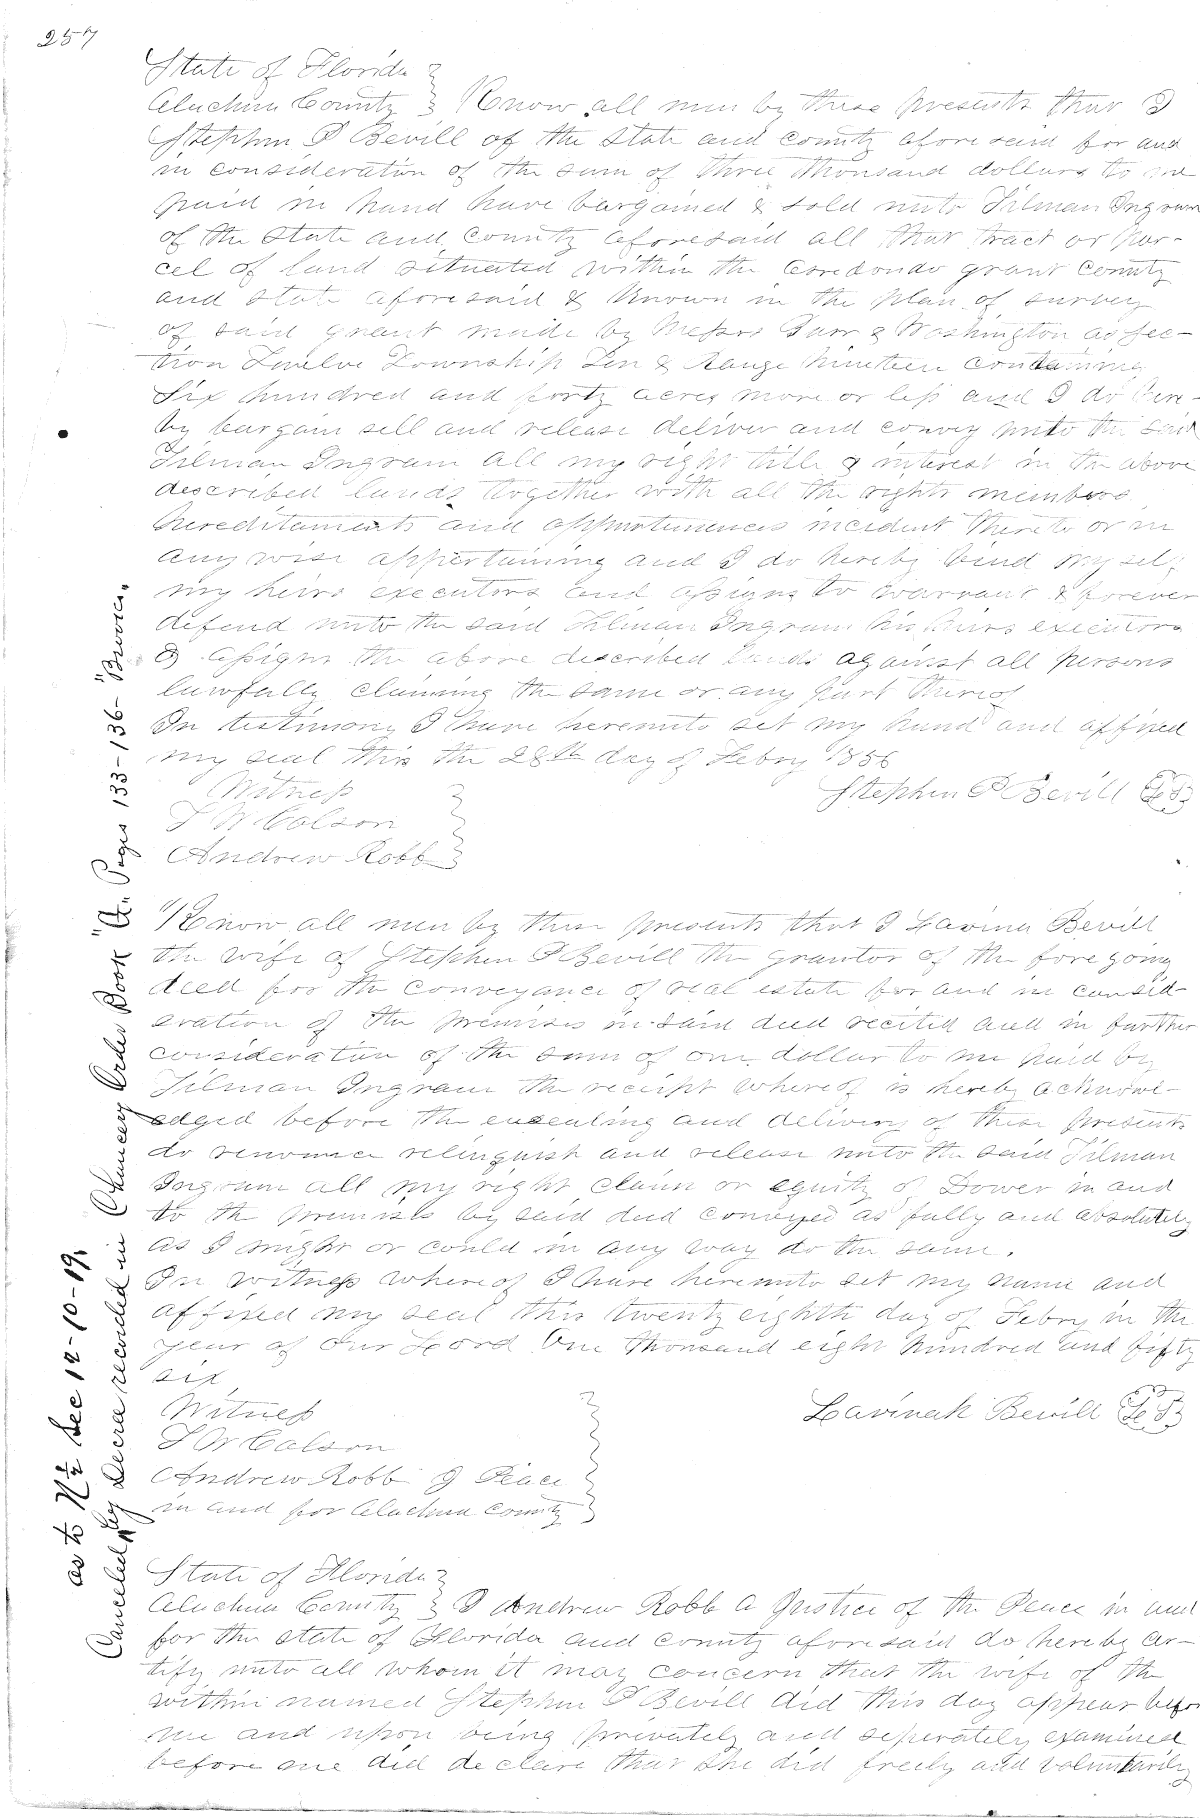 257
State of Florida
Alachua County } Know all men by these presents that I
Stephen P Bevill of the State and county aforesaid for and
in consideration of the sum of three thousand dollars to me
paid in hand have bargained & sold unto Tilman Ingram
of the State and county aforesaid all that tract or par-
cel of land situated within the Arredondo grant county
and state aforesaid & known in the plan of survey
of said grant made by Messrs & Washington as sec-
tion Twelve Township Ten & Range Nineteen containing
Six hundred and forty acres more or less and I do here-
by bargain sell and release deliver and convey unto the said
Tilman Ingram all my right title & interest in the above
described lands together with all the rights members
hereditaments and appurtenances incident thereto or in
any wise appertaining and I do hereby bind my self
my heirs executors and assigns to warrant & forever
defend unto the said Tilman Ingram his heirs executors
& assigns the above described lands against all persons
lawfully claiming the same or any part thereof
In testimony I have hereunto set my hand and affixed
my seal this the 28th day of Febry 1856
Witness
Stephen P Bevill LS
T W Colson
Andrew Robb
Know all men by these presents that I Lavina Bevill
the wife of Stephen P Bevill the grantor of the fore going
deed for the conveyance of real estate for and in consid-
eration of the premises in said deed recited and in further
consideration of the sum of one dollar to me paid by
Tilman Ingram the receipt whereof is hereby acknowl-
edged before the ensealing and delivery of these presents
do renounce relinquish and release unto the said Tilman
Ingram all my right claim or equity of Dower in and
to the premises by said deed conveyed as fully and absolutely
as I might or could in any way do the same.
In witness whereof I have hereunto set my name and
affixed my seal this twenty eighth day of Febry in the
year of Our Lord One thousand eight hundred and fifty
six
Witness
Lavinah Bevill LS
T W Colson
Andrew Robb J Peace
in and for Alachua County
State of Florida
Alachua County } I Andrew Robb a Justice of the Peace in and
for the state of Florida and county aforesaid do hereby cer-
tify unto all whom it may concern that the wife of the
within named Stephen P Bevill did this day appear before
me and upon being privately and seperately examined
before me did declare that she did freely and voluntarily
as to N ½ Sec 12-10-19.
Canceled by Decree recorded in Chancery Order Book "A" Pages 133-136-